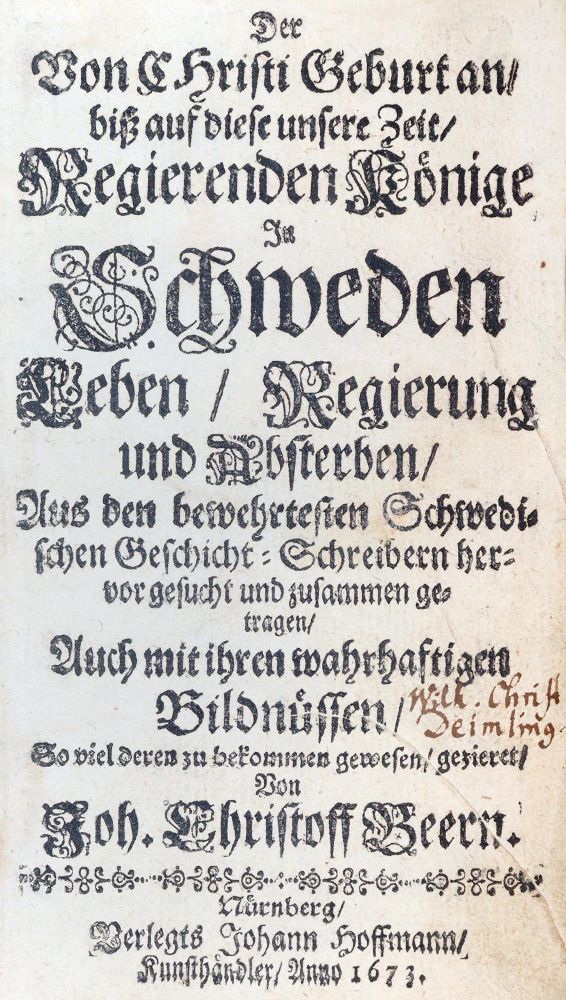 Der
Von CHristi Geburt an/
biß auf diese unsere Zeit/
Regierenden Könige
In
Schweden
Leben / Regierung
und Absterben/
Aus den bewehrtesten Schwedi-
schen Geschicht-Schreibern her-
vor gesucht und zusammen ge-
tragen/
Auch mit ihren wahrhaftigen
Bildnüssen/
Wilh. Christ
Deimling.
So viel deren zu bekommen gewesen/ gezieret/
Von
Joh. Christoff Beern.
Nürnberg/
Verlegts Johann Hoffmann/
Kunsthändler/ Anno 1673.